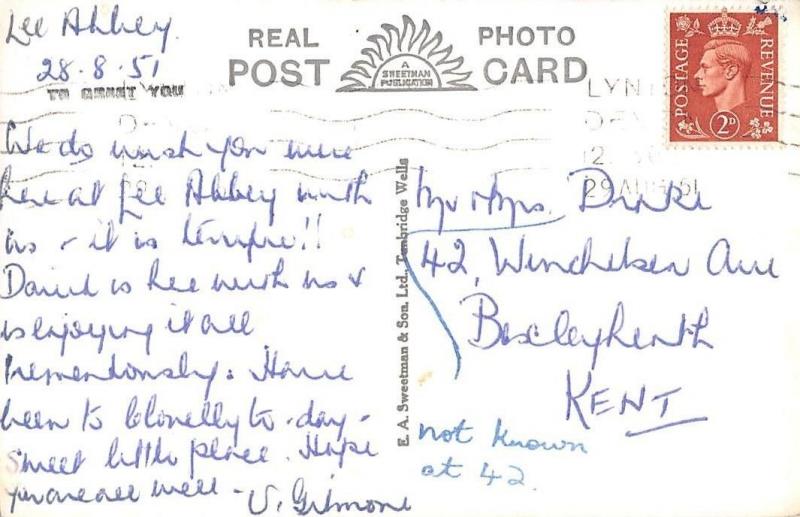 Lee Abbey.
28.8.51
TO GREET YOU
REAL PHOTO
POST CARD
A
SWEETMAN
PUBLICATION
POSTAGE
REVENUE
2D
LYNTON
DEV
12
29 AU 51
We do wish you were
here at Lee Abbey with
us - it is terrific!!
David is here with us &
is enjoying it all
tremendously. Have
been to Clovelly to-day -
Sweet little place. Hope
you are all well - V. Gilmore
E. A. Sweetman & Son. Ltd., Tunbridge Wells
Mr & Mrs. Drake
42, Winchelsea Ave
Bexleyheath
KENT
not known
at 42.